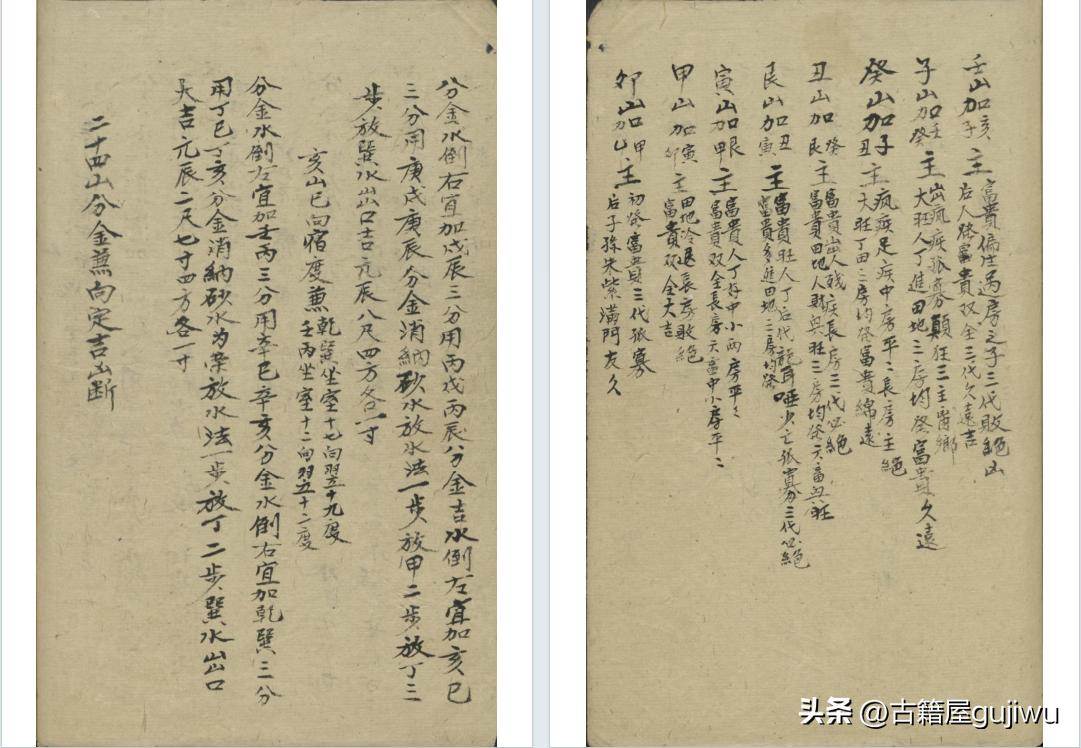 分金水倒右宜加戊辰三分用丙戌丙辰分金吉水倒左宜加亥巳
三分用庚戌庚辰分金消納砂水放水法一步放甲二步放丁三
步放巽水出口吉元辰八尺四方各一寸
亥山巳向宿度兼
乾巽坐室十七向翌十九度
壬丙坐室十二向翌五十二度
分金水倒左宜加壬丙三分用辛巳辛亥分金水倒右宜加乾巽三分
用丁巳丁亥分金消納砂水为荣放水法一步放丁二步巽水出口
大吉元辰二尺七寸四方各一寸
二十四山分金兼向定吉凶断
壬山加亥子主
富貴偏生過房之子三代敗絕凶
后人發富貴双全三代久遠吉
子山加壬癸主
出瘋疾孤寡顛狂三主離鄉
大旺人丁進田地三房均發富貴久遠
癸山加子丑主
瘋疾足疾中房平二長房主絕
大旺丁田二房均發富貴綿遠
丑山加癸艮主
富貴出人残疾長房三代必絕
富貴田地人財興旺三房均發六畜興旺
艮山加丑寅主
富貴旺人丁后代龍耳啞少亡孤寡三代必絕
富貴多進田地三房均發
寅山加艮甲主
富貴人丁好中小兩房平々
富貴双全長房六畜中小房平二
甲山加寅卯主
田地冷退長房敗絕
富貴双全大吉
卯山加甲乙主
初發富貴三代孤寡
后子孫朱紫滿門友久
头条 @古籍屋gujiwu